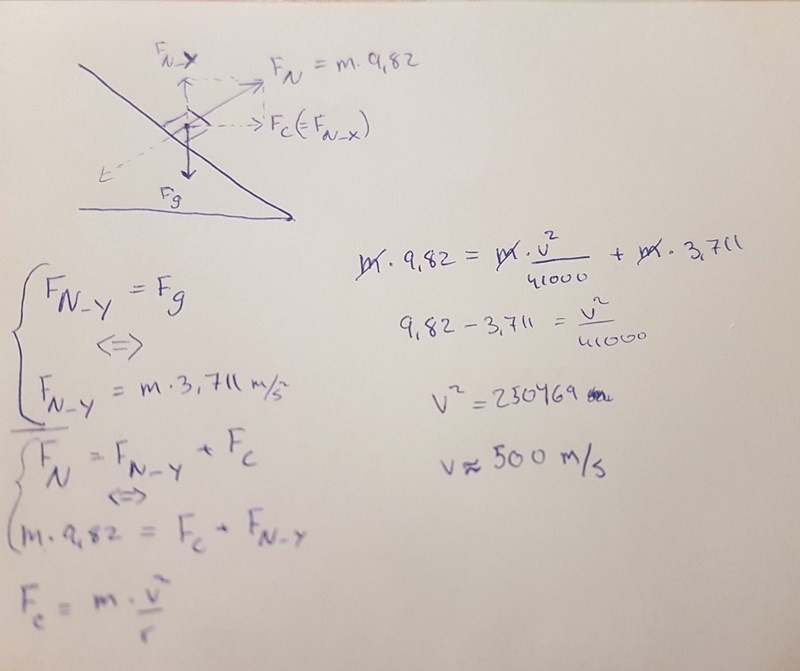 F_N-Y
F_N = m · 9,82
F_C (= F_N-X)
F_g
F_N-Y = F_g
<=>
F_N-Y = m · 3,711 m/s²
F_N = F_N-Y + F_C
<=>
m · 9,82 = F_C + F_N-Y
F_C = m · v²/r
m · 9,82 = m · v²/41000 + m · 3,711
9,82 - 3,711 = v²/41000
v² = 250469
v ≈ 500 m/s